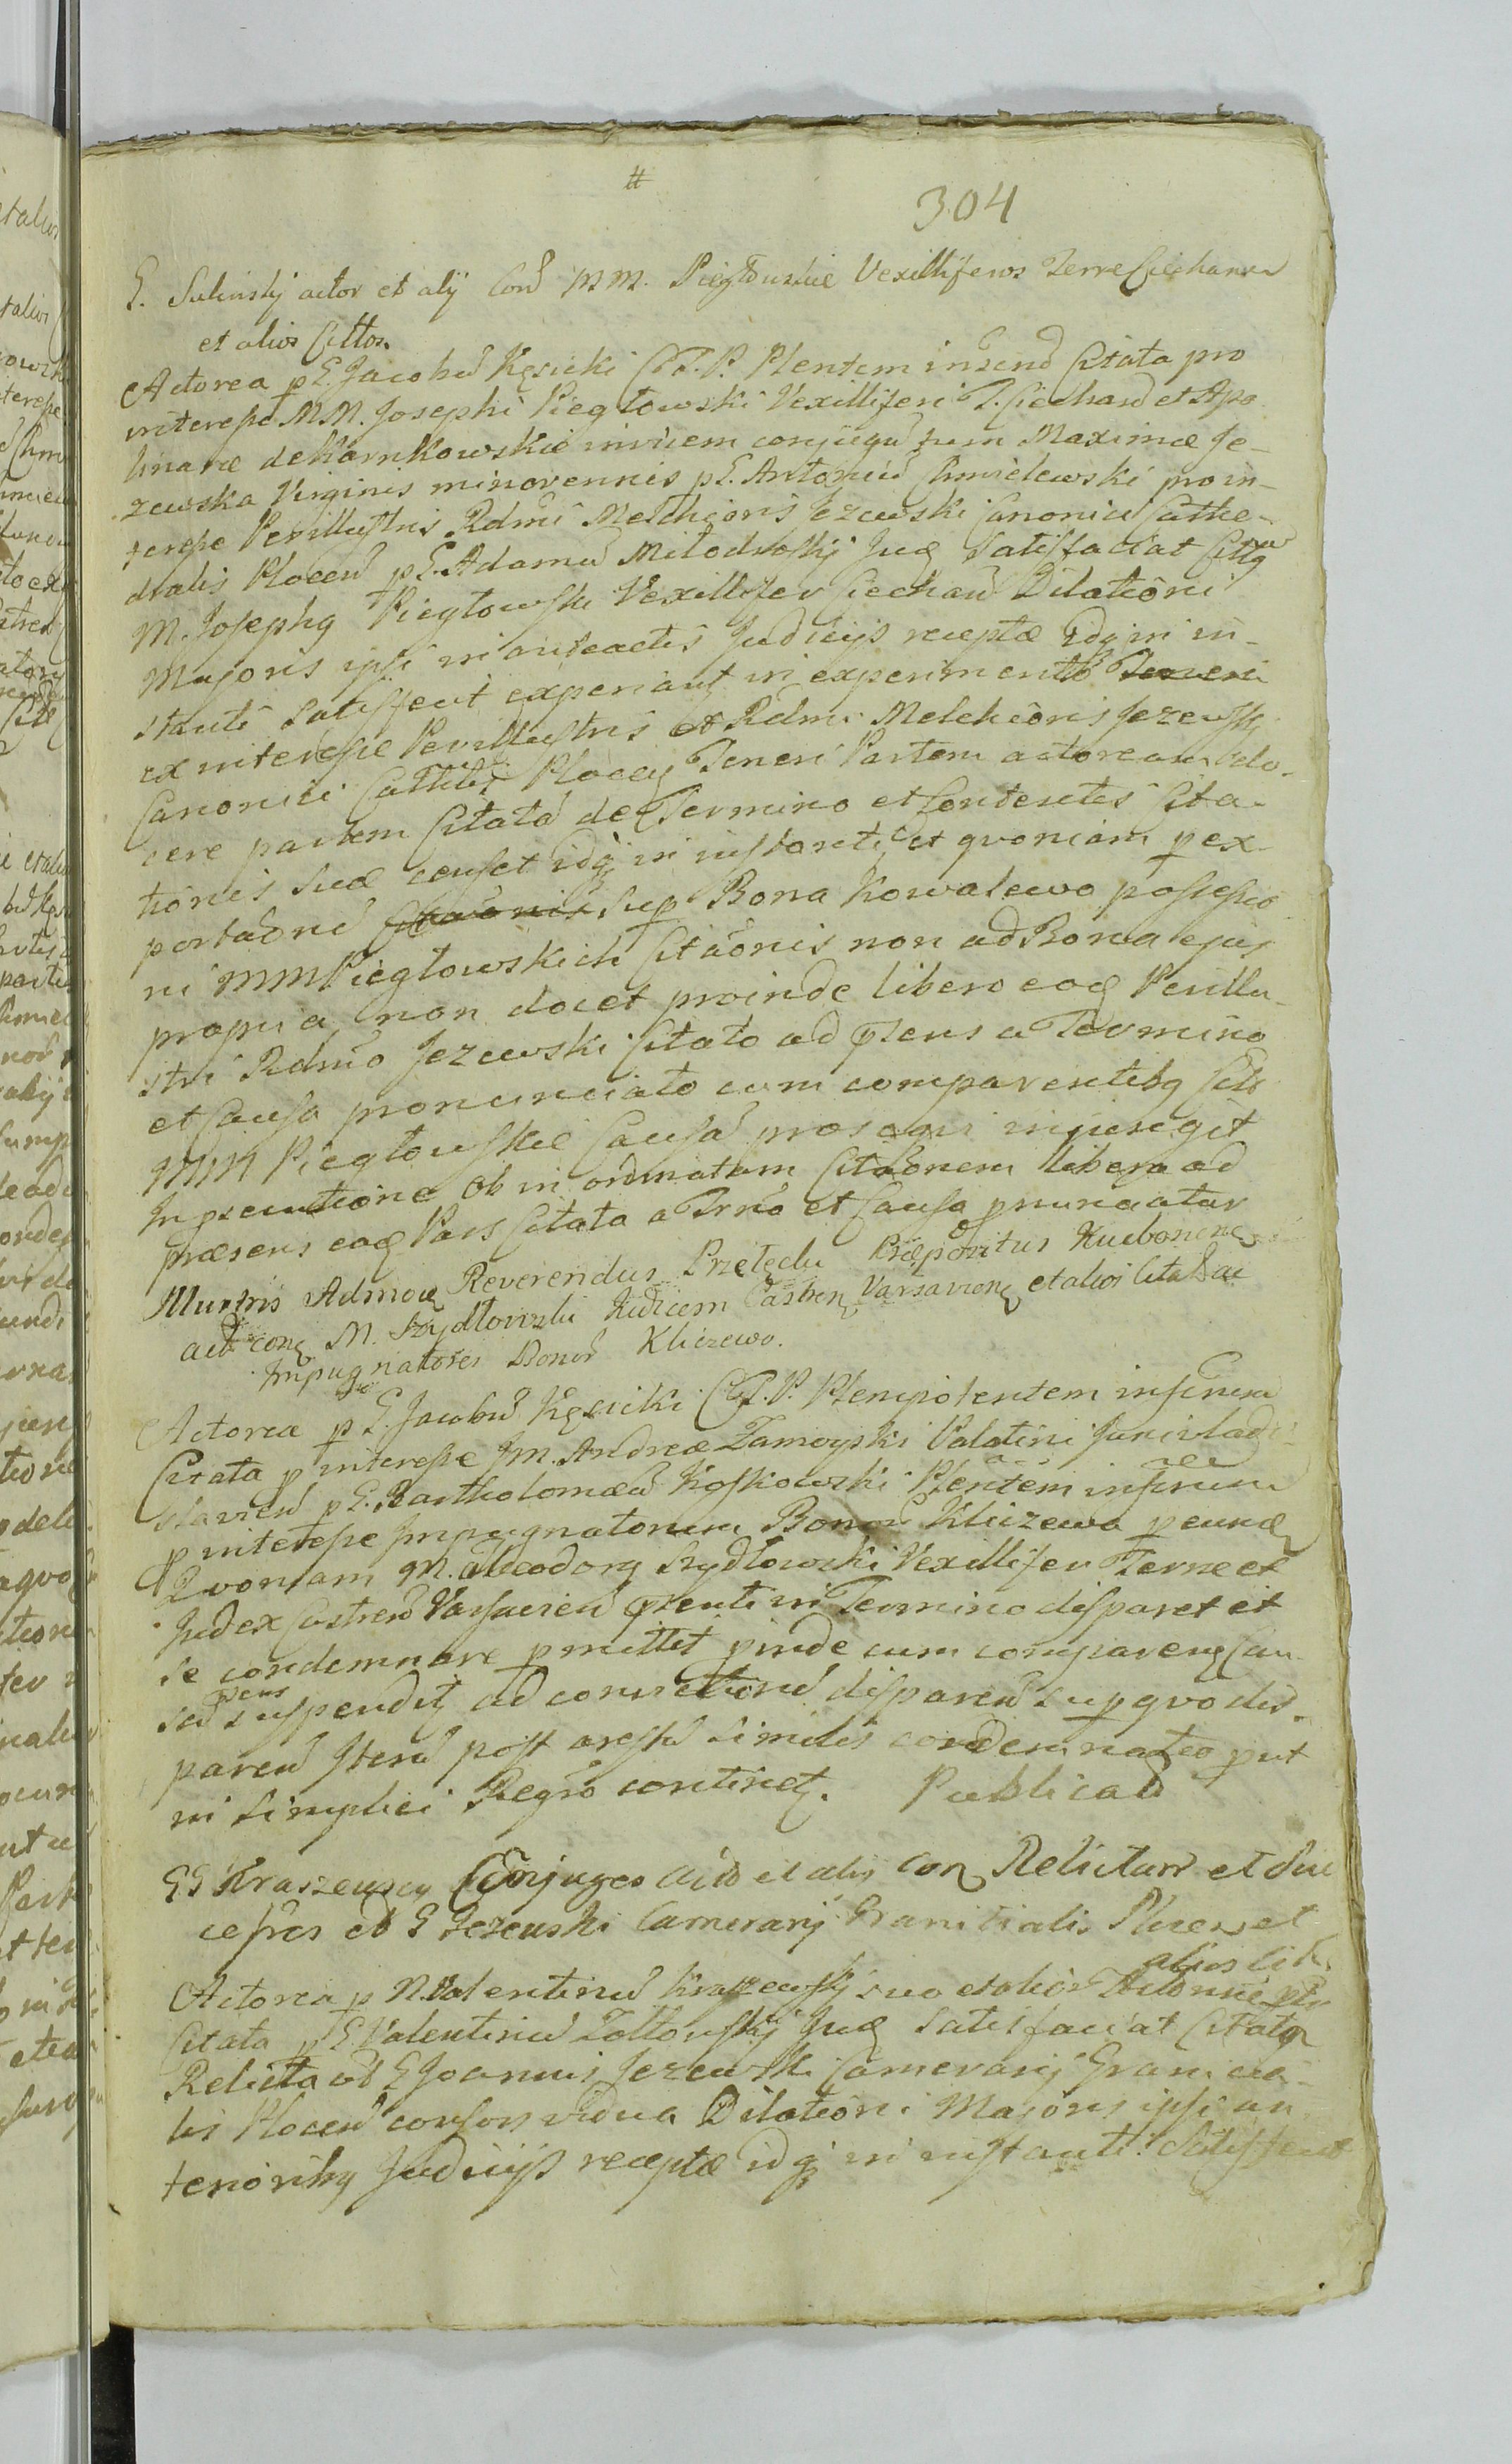 #
304
G. Suliński actor et alij Con̄ MM. Piegłowskie Vexilliferos Terre Ciechanen
et alios Cittos.
Actorea p G. Jacobū Kęsicki C.T.P. Plentem inscnd Citata pro
interesse MM. Josephi Piegłowski Vexilliferi T. Ciechanū et Apo
linaræ de Karnkowskie invicem conjugū tum Maximæ Je-
zewska Virginis minorennis p G. Antoniū Chmielewski pro in-
teresse Perillustris Rdmi Melchioris Jezewski Canonici Cathe-
dralis Plocen p G. Adamū Miłodroski Juq Satisfaciat Cittq
M. Josephq Piegłowski Vexillifer Ciechanū Dilationi
Majoris ipsi in anteactis Judicijs receptæ idq in in-
stanti Satisfecit experiantq in experimento Teneri
ex interesse Perillustris et Rdmi Melchioris Jezewski
Canonici Cathlis Plocen Teneri Partem actoream do-
cere partem Citatā de Termino et Contentis Cita-
tionis suæ censet idq in instanti et quoniam p ex-
portatōne Citaōnis sup Bona Kowalewo possessio
ni MM Piegłowskich Citaōnis non ad Bona ejus
propria, non docet proinde libero eoq Perillu-
stri Rdmo Jezewski Citato ad pzens a Termino
et Causa pronunciato cum comparentibq Citt
MM Piegłowskie Causā prosequi injungit
In prsecutione ob in ordinatam Citaōnem libera ad
præsens eaq Pars Citata a Trno et Causa pnunciatur
Illustris Admoq Reverendus Przełęcki Præpositus Kucbonienq
act conq M. Szydłowski Judicem Castren Varsavienq et alios Citt ac
Impugnatores Bonor Kliczewo.
Actorea p G. Jacobū Kęsicki C.T.P. Plenipotentem inscnem
Citata p interesse Jm. Andreæ Zamoyski Palatini Junivladi-
slavien p G. Bartholomæū Koskowski Plentem inscnem
p interesse Impugnatorum Bonor Kliczewo p eundq
Quoniam M. Theodorq Szydłowski Vexillifer Terræ et
Judex Castren Varsavien pzenti in Termino disparet et
se condemnare pmittit pinde cum comparenq Cau-
sā pens suspenditq ad convictionē disparen sup quo dis-
paren Itenū post arestū similis condemnatio put
in simplici Regro continetq. Publicatū
GG Kraszewscy Conjuges Act et alij Conq Relictam et Suc
cessres ol G Jezewski Camerarij Granitialis Plocen et
alios Citt.
Actorea p N. Valentinū Kraszewski suo et aliōr Actōrum
Citata p G Valentinū Zołtowski Juq Satisfaciat Citata
Relicta ol G Joannis Jezewski Camerarij Granicia-
lis Plocen consors vidua Dilationi Majoris ipsi an
teriōribq Judicijs receptæ idq in instanti Satisfecit